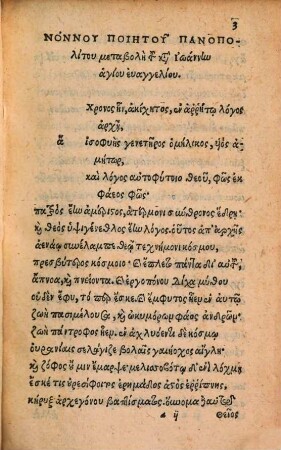 3
ΝΟΝΝΟΥ ΠΟΙΗΤΟΥ ΠΑΝΟΠΟ-
λίτου μεταβολὴ τοῦ κατὰ Ἰωάννω
ἁγίου εὐαγγελίου.
Χρονος ἦν, ἀκίχητος, ἐν ἀῤῥήτῳ λόγος
ἀρχῇ.
ἄ Ἰσοφυὴς γενετῆρος ὁμήλικος, ὑὸς ἀ-
μήτωρ,
καὶ λόγος αὐτοφύτοιο θεοῦ, φῶς ἐκ
φάεος φῶς·
πατρὸς ἔίω ἀμέριςος, ἀτέρμονι σύνθρονος ἕδρῃ·
καὶ θεὸς ὑψιγένεθλος ἔίω λόγος. οὗτος ἀπ' ἀρχῆς
ἀενάῳ συνέλαμπε θεῷ τεχνήμονι κόσμου,
πρεσβύτερος κόσμοιο· ὁ ἔπλετο πάντα δι' αὐτοῦ,
ἄπνοα, καὶ πνείοντα. ὁ ἐργοπόνου δίχα μύθου
οὐδὲν ἔφυ, τό περ ἔσκε. ὁ ἔμφυτος ἦεν ἐν αὐτῷ
ζωὴ πασιμέλουσα, καὶ ὠκυμόρων φάος ἀνδρῶν
ζωὴ πάντροφος ἦεν. ἐν ἀχλυόεντι δὲ κόσμῳ
οὐρανίαις σελάγιζε βολαῖς γαιήοχος αἴγλη·
καὶ ζόφος οὔ μιν ἔμαρψε. μελιςοβότῳ δ' ἐνὶ λόχμῃ
ἔσκέ τις ὀρεσίφοιτος ἐρημάδος ἀςὸς ἐρίπνης,
κήρυξ ἀρχεγόνου βαπτίσματος· οὔνομα δ' αὐτοῦ
A ij θεῖος